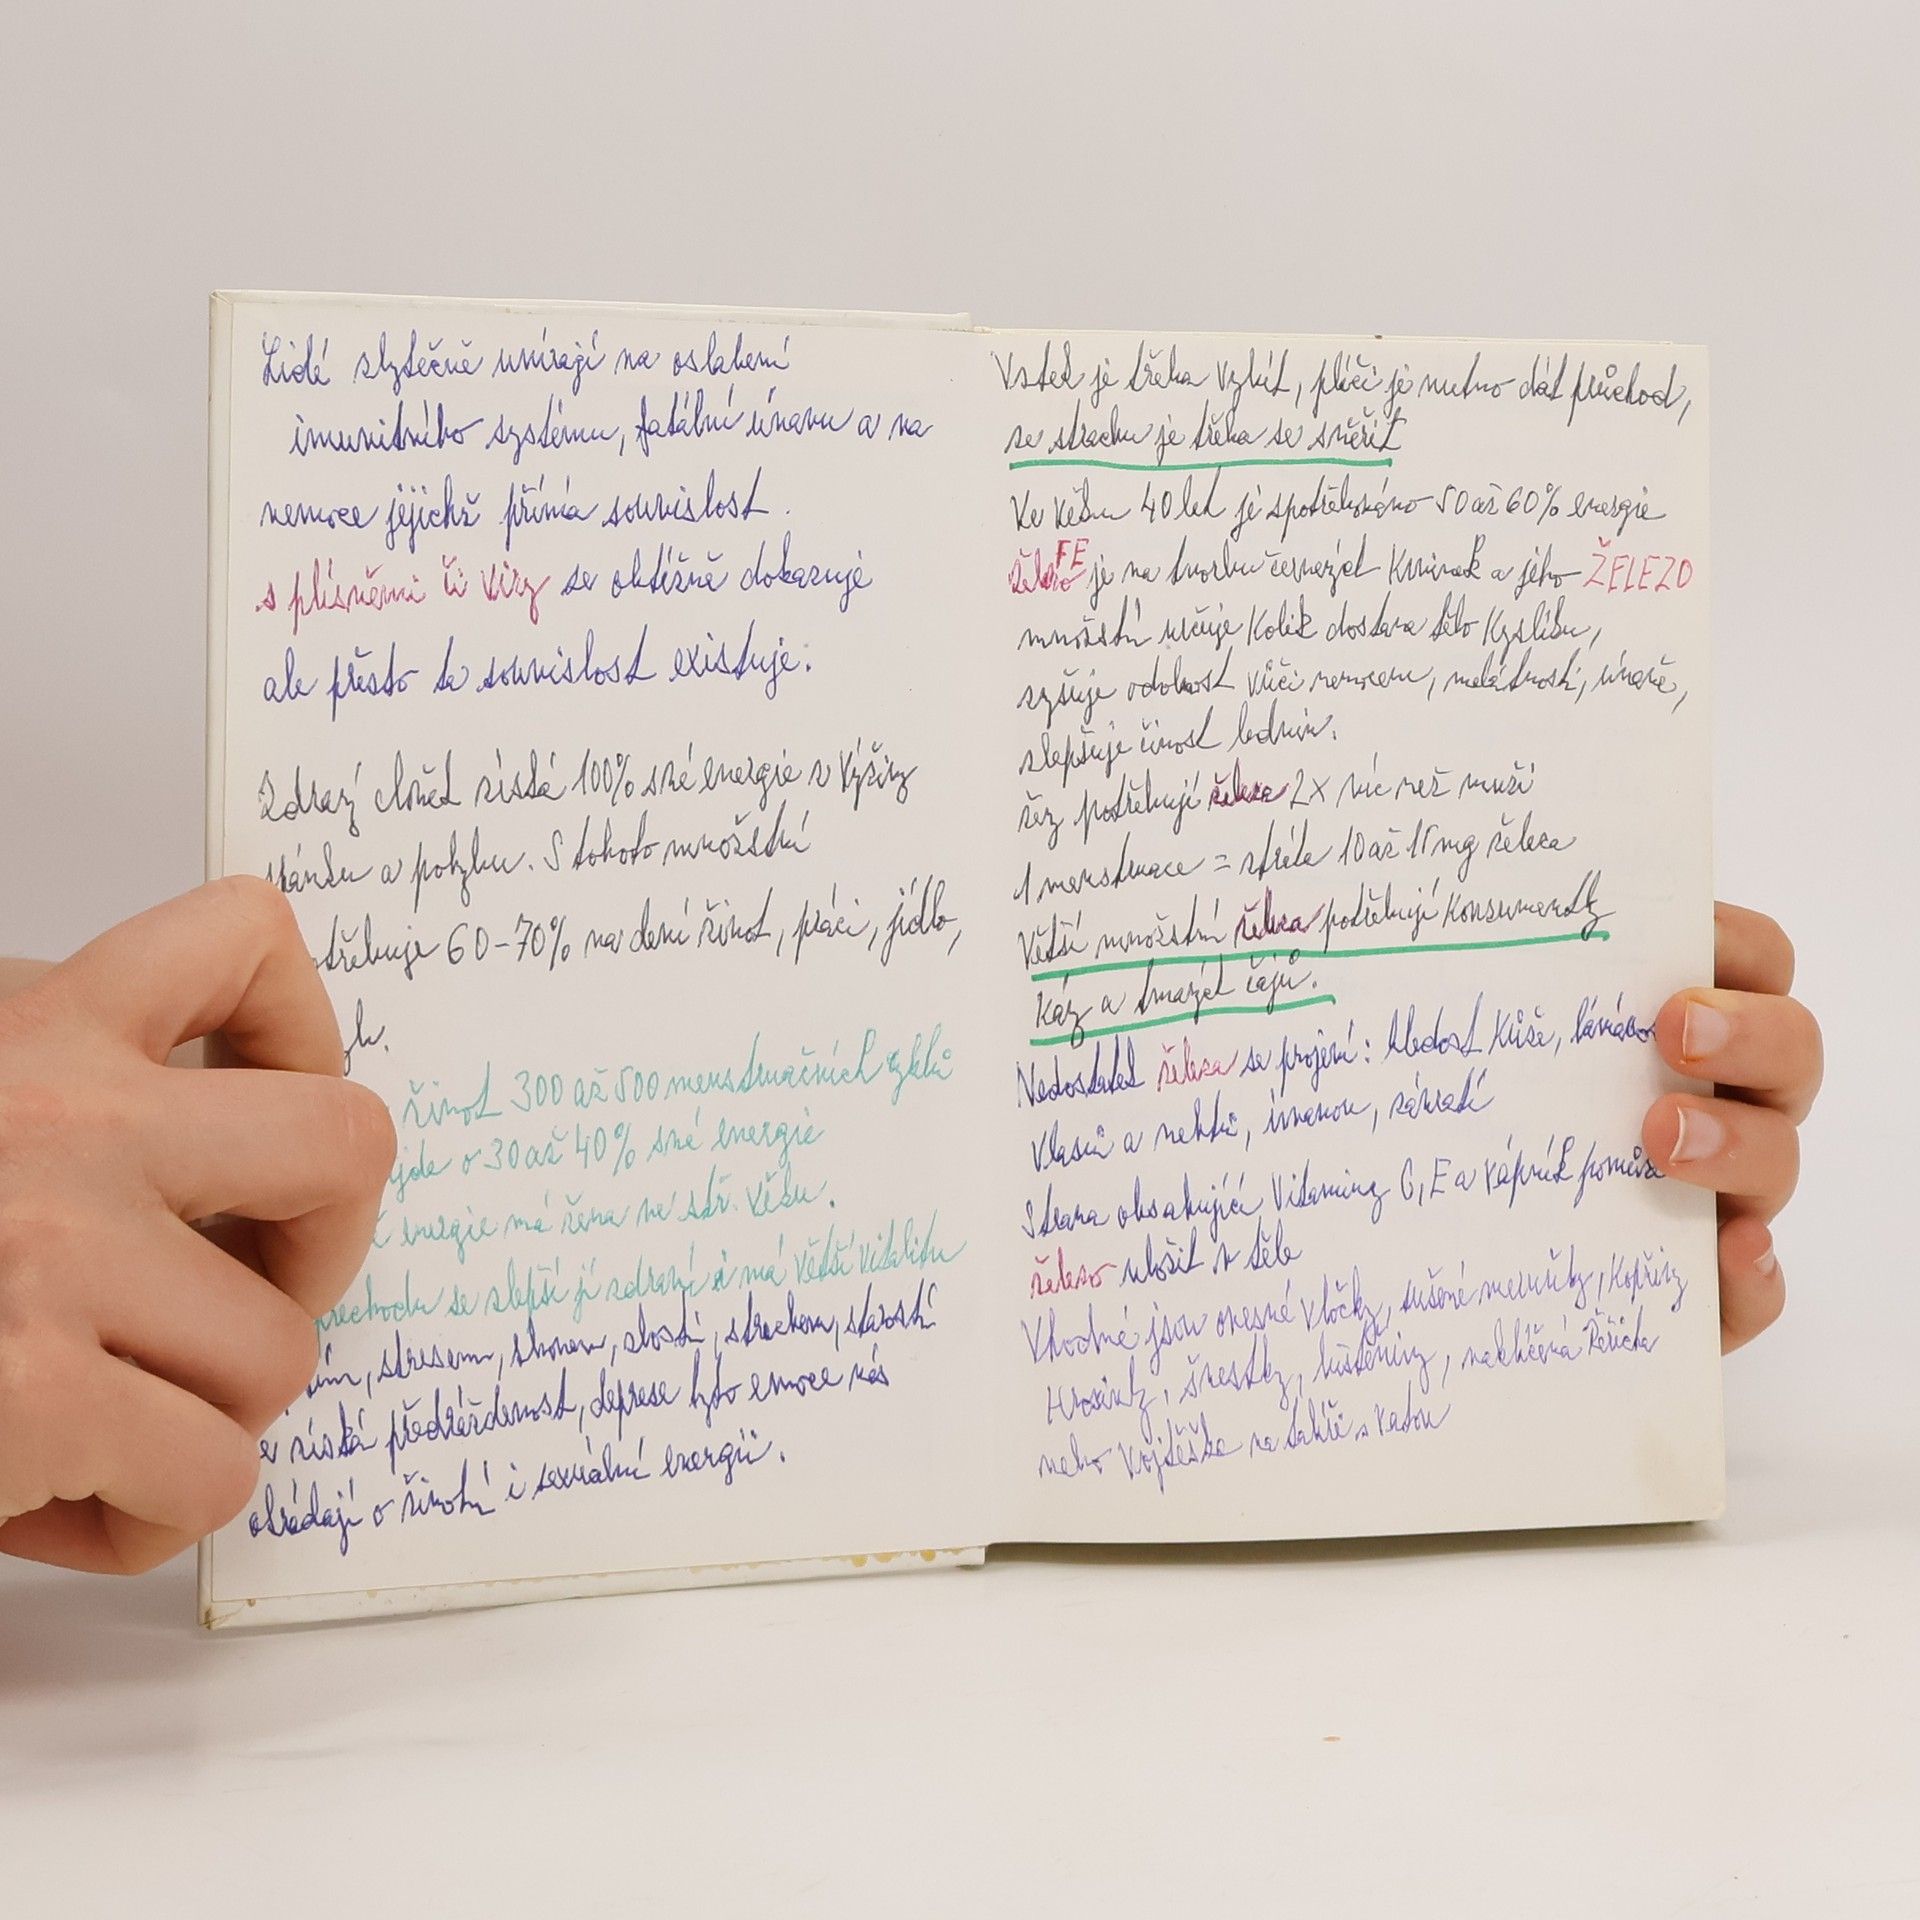 Lidé zbytečně umírají na oslabení
imunitního systému, fatální únavu a na
nemoce jejichž přímá souvislost
s plísněmi či viry se obtížně dokazuje
ale přesto ta souvislost existuje.
Zdravý člověk získá 100% své energie z výživy
spánku a pohybu. S tohoto množství
60-70% na denní život, práci, jídlo,
život 300 až 500 menstruačních cyklů
o 30 až 40% své energie
energie má žena ve stř. věku.
přechodu se zlepší jí zdraví a má větší vitalitu
, stresem, shonem, zlostí, strachem, starostí
získá předrážděnost, deprese tyto emoce nás
okrádají o životní i sexuální energii.
Vztek je třeba vybít, pláči je nutno dát průchod,
se strachu je třeba se svěřit
Ve věku 40 let je spotřebováno 50 až 60% energie
Železo FE je na tvorbu červených krvinek a jeho ŽELEZO
množství určuje kolik dostane tělo kyslíku,
zvyšuje odolnost vůči nemocem, malátnosti, únavě,
zlepšuje činost ledvin.
ženy potřebují železa 2x víc než muži
1 menstruace = ztráta 10 až 15 mg železa
Větší množství železa potřebují konzumentky
kávy a tmavých čajů.
Nedostatek železa se projeví: bledost kůže,
vlasů a nehtů, únavou, závratí
Strava obsahující vitaminy C, E a vápník pomůže
železo uložit v těle
Vhodné jsou ovesné vločky, sušené meruňky, kopřivy
Hrozinky, švestky, luštěniny, naklíčená Řeřicha
nebo vojtěška na talíři s vatou